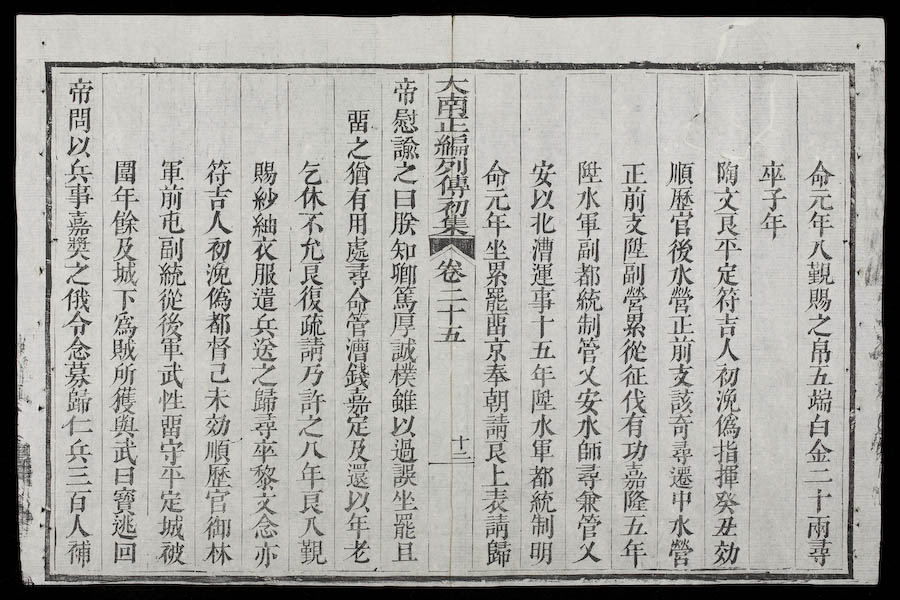 命元年入覲賜之帛五端白金二十兩尋
卒子年
陶文良平定符吉人初浼僞指揮癸丑効
順歷官後水營正前支該奇尋遷中水營
正前支陞副營累從征伐有功嘉隆五年
陞水軍副都統制管乂安水師尋兼管乂
安以北漕運事十五年陞水軍都統制明
命元年坐累罷畱京奉朝請良上表請歸
大南正編列傳初集 卷二十五 十二
帝慰諭之曰朕知卿篤厚誠樸雖以過誤坐罷且
畱之猶有用處尋命管漕錢嘉定及還以年老
乞休不允良復疏請乃許之八年良入覲
賜紗紬衣服遣兵送之歸尋卒黎文念亦
符吉人初浼僞都督己未効順歷官御林
軍前屯副統從後軍武性畱守平定城被
圍年餘及城下爲賊所獲與武曰寶逃回
帝問以兵事嘉獎之俄令念募歸仁兵三百人補